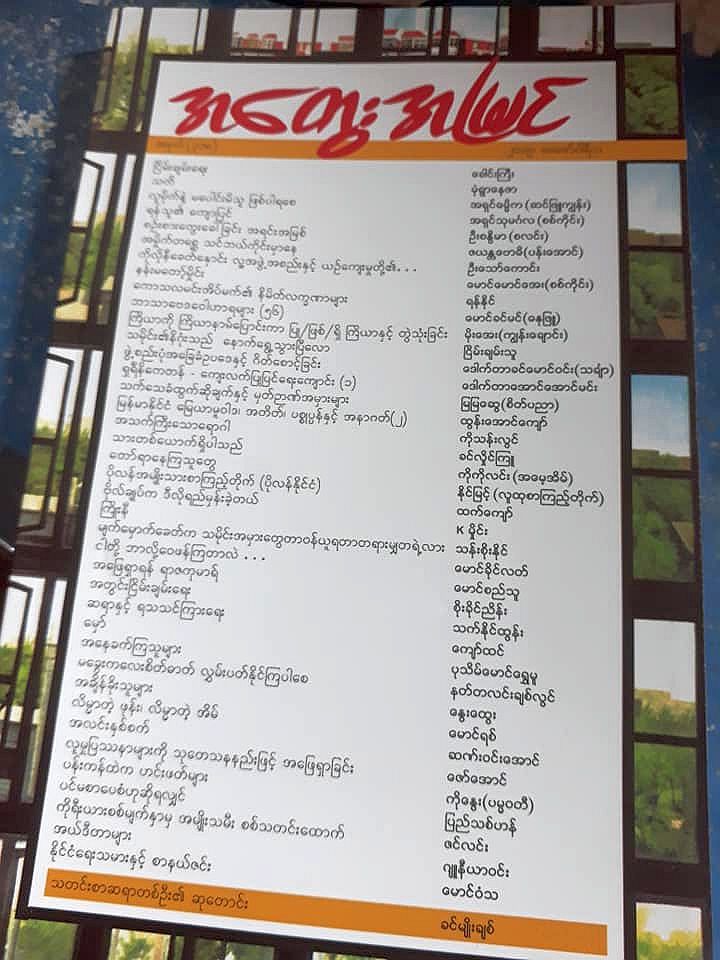 အတွေးအမြင်
ငြိမ်းချမ်းရေး ခေါင်းကြီး
သတိ ပုံရွာနေဇာ
လူမိုက်နဲ့ မပေါင်းမိသူ ဖြစ်ပါရစေ အရှင်ဓမ္မိက (ဆင်ဖြူကျွန်း)
ရန်သူ၏ ကျောပြင် အရှင်သုမင်္ဂလ (စစ်ကိုင်း)
စဉ်းစားတွေးခေါ်ခြင်း အရင်းအမြစ် ဦးစန္ဒိမာ (စလင်း)
အမှိုက်တရွှေ သင်ဘယ်ကိုင်းမှာနေ ဇယန္တဗောဓိ(ပန်းအောင်)
ကိုလိုနီခေတ်နှောင်း လူ့အဖွဲ့အစည်းနှင့် ယဉ်ကျေးမှုတို့၏... ဦးသော်ကောင်း
နန်းမတော်မှိုင်း မောင်မောင်အေး(စစ်ကိုင်း)
ကောသလမင်းအိပ်မက်၏ နိမိတ်လက္ခဏာများ ရန်နိုင်
ဘာသာဗေဒဝေါဟာရများ (၅၆) မောင်ခင်မင်(ဓနုဖြူ)
ကြိယာကို ကြိယာနာမ်ပြောင်းကာ ပြု/ဖြစ်/ရှိ ကြိယာနှင့် တွဲသုံးခြင်း မိုးအေး(ကျွန်းချောင်း)
သမိုင်း၏နိဂုံးသည် နောက်ရွှေ့သွားပြီလော ငြိမ်းချမ်းသူ
ဖွဲ့စည်းပုံအခြေခံဥပဒေနှင့် ဂိတ်စောင့်ခြင်း ဒေါက်တာခင်မောင်ဝင်း(သင်္ချာ)
ရှရီနိကေတန် - ကျေးလက်ပြုပြင်ရေးကျောင်း (၁) ဒေါက်တာအောင်အောင်မင်း
သက်သေခံထွက်ဆိုချက်နှင့် မှတ်ဉာဏ်အမှားများ မြမြဆွေ(စိတ်ပညာ)
မြန်မာနိုင်ငံ မြေယာမူဝါဒ၊ အတိတ်၊ ပစ္စုပ္ပန်နှင့် အနာဂတ်(၂) ထွန်းအောင်ကျော်
အသက်ကြီးသောရောဂါ ကိုသန်းလွင်
သားတစ်ယောက်ရှိပါသည် ခင်လှိုင်ကြူ
တော်ရာနေကြသူတွေ ကိုကိုလင်း (အဓေ့အိမ်)
ပိုလန်အမျိုးသားစာကြည့်တိုက် (ပိုလန်နိုင်ငံ) နိုင်မြင့် (လူထုစာကြည့်တိုက်)
ဗိုလ်ချုပ်က ဒီလိုရည်မှန်းခဲ့တယ် ထက်ကျော်
ကြိုးနီ K မှိုင်း
မျက်မှောက်ခေတ်က သမိုင်းအမှားတွေတာဝန်ယူရတာတရားမျှတရဲ့လား သန်းစိုးနိုင်
ငါတို့ ဘာလို့ဝေဖန်ကြတာလဲ ... မောင်ခိုင်လတ်
အဖြေရှာရန် ရာဇကုမာရ် မောင်စည်သူ
အတွင်းငြိမ်းချမ်းရေး စိုးခိုင်ညိန်း
ဆရာနှင့် ရသသင်ကြားရေး သက်နိုင်ထွန်း
မှော် ကျော်ထင်
အနေခက်ကြသူများ ပုသိမ်မောင်ရွှေမှူ
မခွေးကလေးစိတ်ဓာတ် လွှမ်းပတ်နိုင်ကြပါစေ နတ်တလင်းချစ်လွင်
အချိန်ခိုးသူများ နွေးထွေး
လိမ္မာတဲ့ ဖုန်း၊ လိမ္မာတဲ့ အိမ် မောင်ရစ်
အလင်းနှစ်စက် ဆဏ်းဝင်းအောင်
လူမှုပြဿနာများကို သုတေသနနည်းဖြင့် အဖြေရှာခြင်း ဇော်အောင်
ပန်းကန်ထဲက ဟင်းဖတ်များ ကိုနွေး(ပမ္မဝတီ)
ပင်မစာပေစံဟုဆိုရလျှင် ပြည်သစ်ဟန်
ကိုရီးယားစစ်မျက်နှာမှ အမျိုးသမီး စစ်သတင်းထောက် ဇင်လင်း
အယ်ဒီတာများ ဂျူနီယာဝင်း
နိုင်ငံရေးသမားနှင့် စာနယ်ဇင်း မောင်ဝံသ
သတင်းစာဆရာတစ်ဦး၏ ဆုတောင်း ခင်မျိုးချစ်